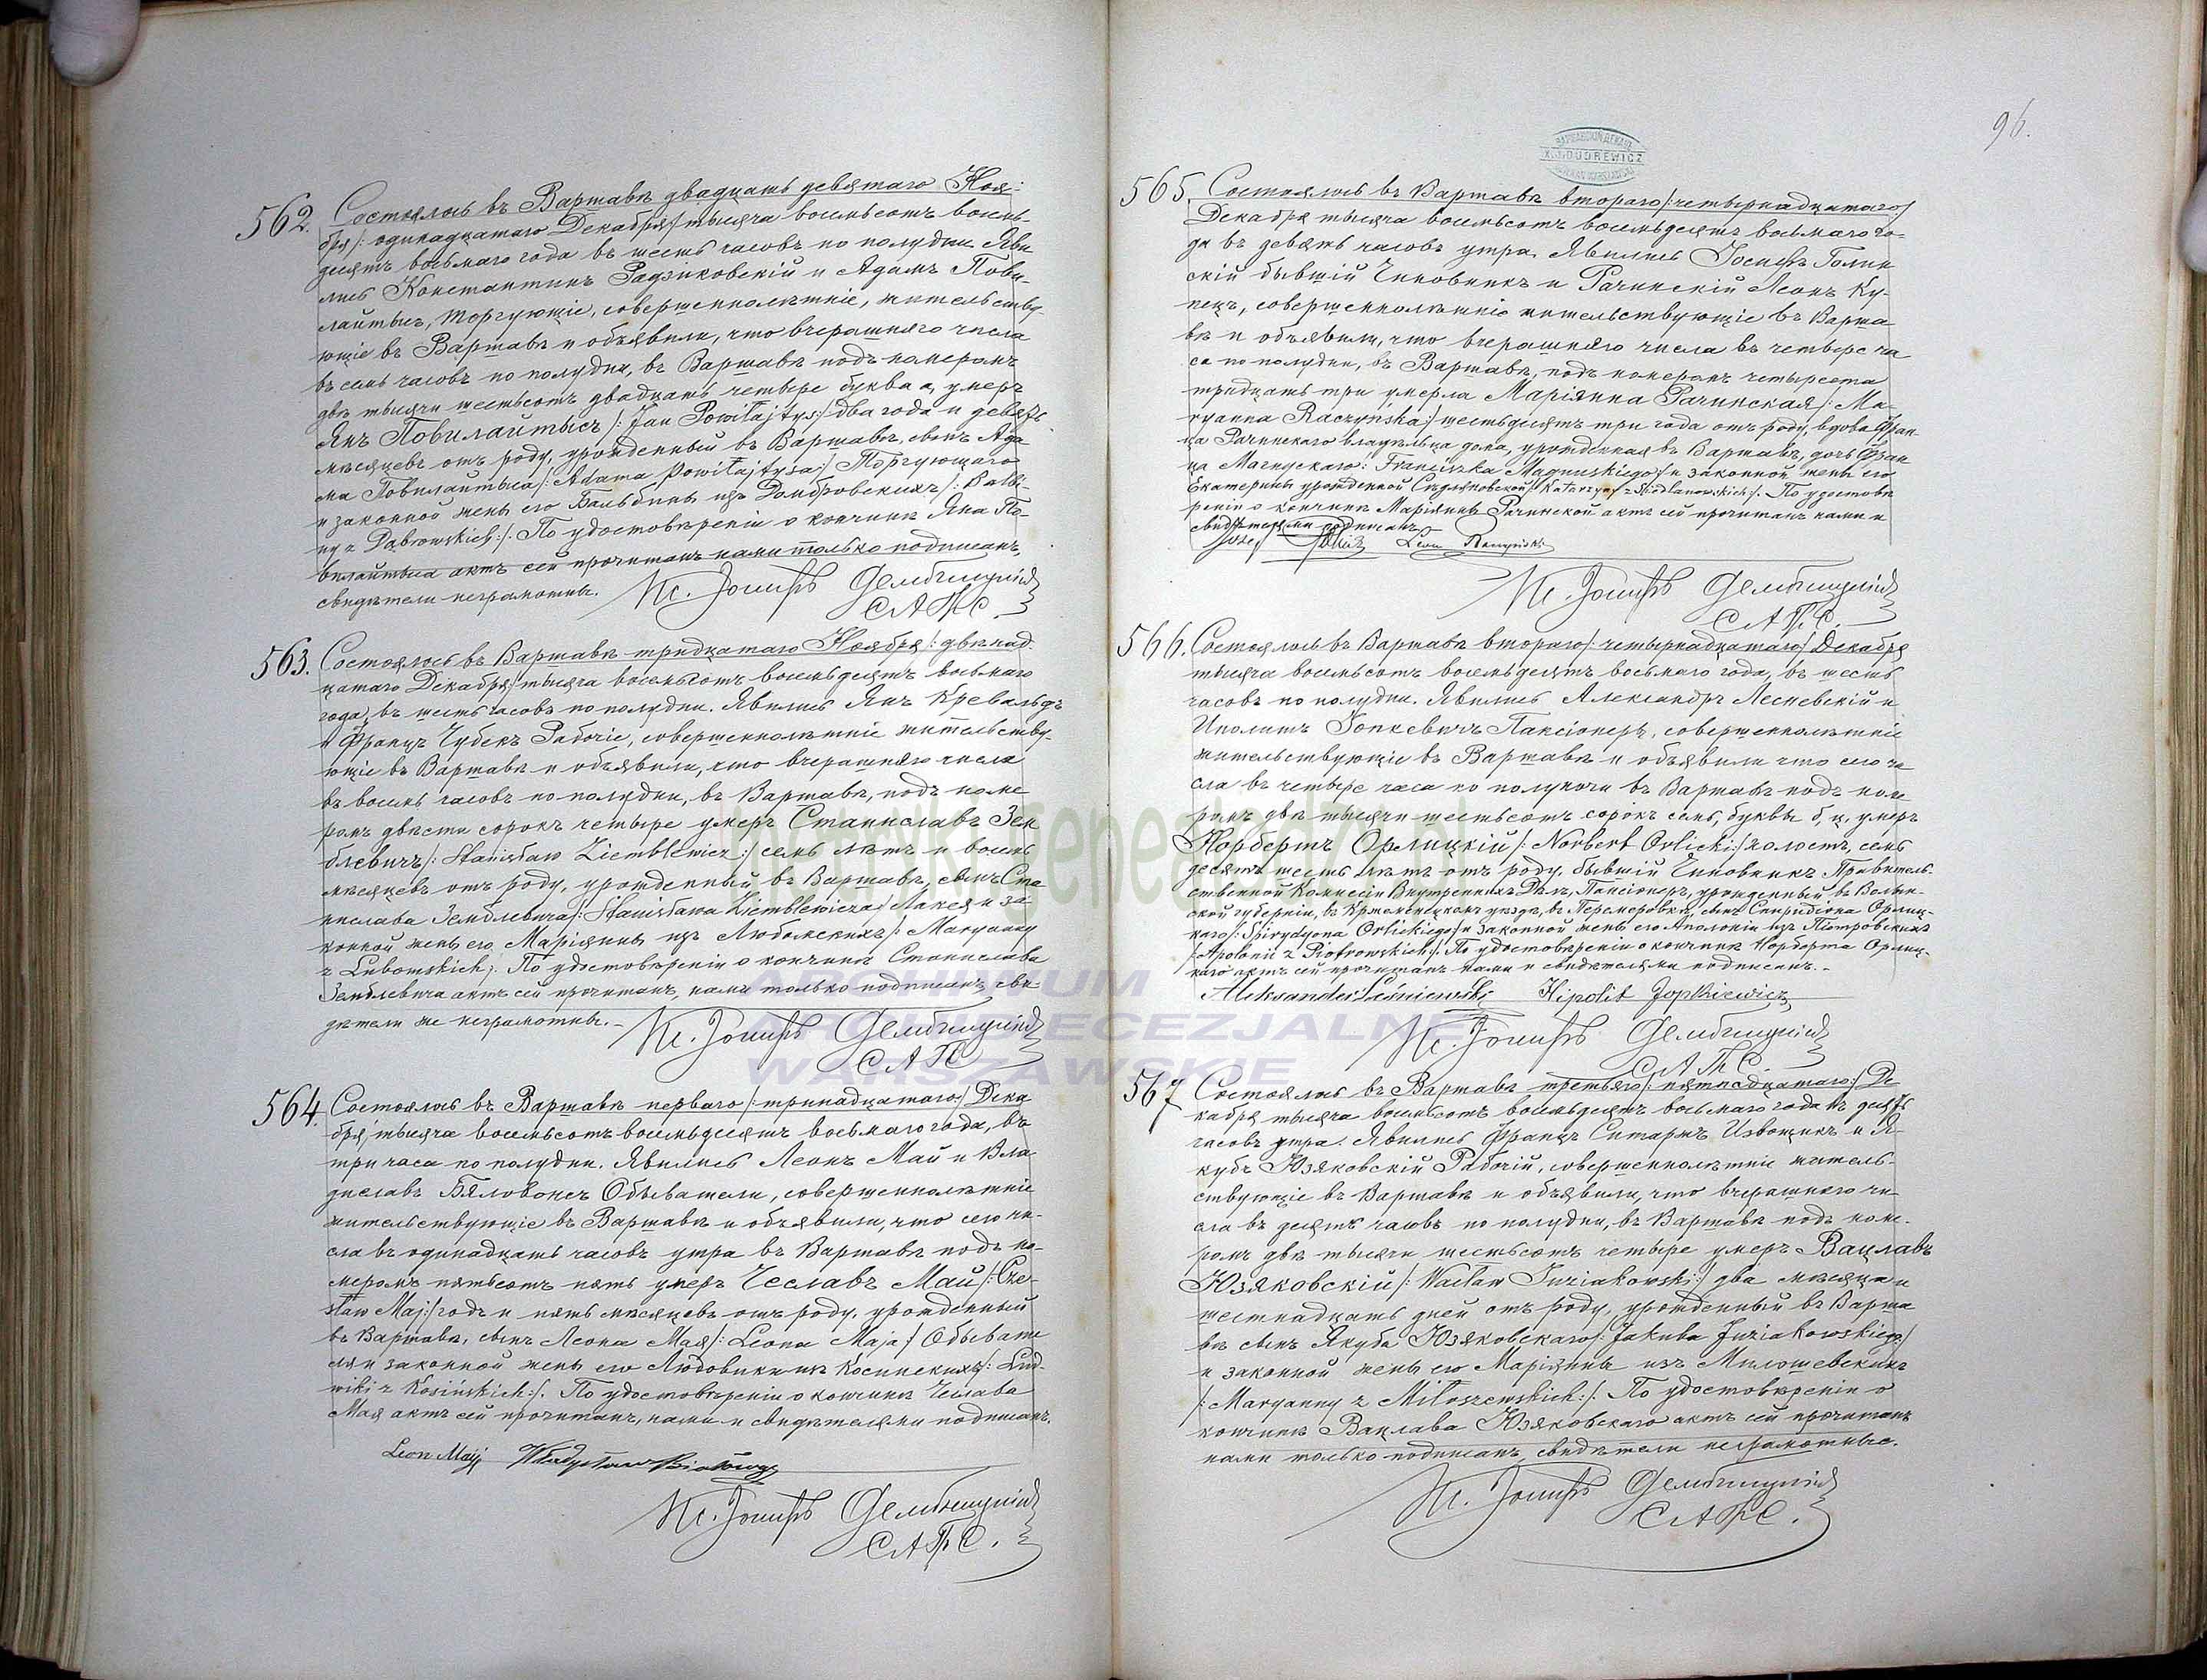 562. Состоялось въ Варшавѣ двадцать девятаго Ноя-
бря /: одинадцатаго Декабря/ тысяча восемьсотъ восемь-
десятъ восьмаго года въ шесть часовъ по полудни. Яви
лись Константинъ Радзиковскій и Адамъ Пови-
лайтысъ, торгующіе, совершеннолѣтніе, жительству
ющіе въ Варшавѣ и объявили, что вчерашняго числа
въ семь часовъ по полудни, въ Варшавѣ подъ номеромъ
двѣ тысячи шестьсотъ двадцать четыре буква а, умеръ
Янъ Повилайтысъ /: Jan Powiłajtys:/ два года и девять
мѣсяцевъ отъ роду, урожденный въ Варшавѣ, сынъ Ада
ма Повилайтыса /: Adama Powiłajtysa:/ Торгующаго
и законной жены его Бальбины изъ Домбровскихъ /: Balbi-
ny z Dąbrowskich:/. По удостовѣреніи о кончинѣ Яна По-
вилайтыса актъ сей прочитанъ нами только подписанъ,
свидѣтели неграмотны.
563. Состоялось въ Варшавѣ тридцатаго Ноября /: двѣнад
цатаго Декабря/ тысяча восемьсотъ восемьдесятъ восьмаго
года, въ шесть часовъ по полудни. Явились Янъ Кревальдъ
и Францъ Чубекъ Рабочіе, совершеннолѣтніе жительству-
ющіе въ Варшавѣ и объявили, что вчерашняго числа
въ восемь часовъ по полудни, въ Варшавѣ, подъ номе
ромъ двѣсти сорокъ четыре умеръ Станиславъ Зем
блевичъ /: Stanisław Ziemblewicz:/ семь лѣтъ и восемь
мѣсяцевъ отъ роду, урожденный въ Варшавѣ, сынъ Ста
нислава Земблевича /: Stanisława Ziemblewicza/ Лакея и за
конной жены его Маріянны изъ Любомскихъ /: Maryanny
z Lubomskich:/. По удостовѣреніи о кончинѣ Станислава
Земблевича актъ сей прочитанъ, нами только подписанъ, сви-
дѣтели же неграмотны.
564. Состоялось въ Варшавѣ перваго /: тринадцатаго:/ Дека
бря, тысяча восемьсотъ восемьдесятъ восьмаго года, въ
три часа по полудни. Явились Леонъ Май и Вла-
диславъ Бяловонсъ Обыватели, совершеннолѣтніе
жительствующіе въ Варшавѣ и объявили, что сего чи-
сла въ одинадцать часовъ утра въ Варшавѣ подъ но-
меромъ пятьсотъ пять умеръ Чеславъ Май /: Cze-
sław Maj:/ годъ и пять мѣсяцевъ отъ роду, урожденный
въ Варшавѣ, сынъ Леона Мая /: Leona Maja:/ Обывате
ля и законной жены его Людовики изъ Косинскихъ /: Lud-
wiki z Kosińskich:/. По удостовѣреніи о кончинѣ Чеслава
Мая актъ сей прочитанъ, нами и свидѣтелями подписанъ.
Leon Maj
96.
565. Состоялось въ Варшавѣ втораго /: четырнадцатаго/
Декабря тысяча восемьсотъ восемьдесятъ восьмаго го-
да въ девять часовъ утра. Явились Іосифъ Голин
скій бывшій Чиновникъ и Рачинскій Леонъ Ку-
пецъ, совершеннолѣтніе жительствующіе въ Варша
вѣ и объявили, что вчерашняго числа въ четыре ча
са по полудни, въ Варшавѣ, подъ номеромъ четыреста
тридцать три умерла Маріянна Рачинская /: Ma-
ryanna Raczyńska:/ шестьдесятъ три года отъ роду, вдова Фран
ца Рачинскаго владѣльца дома, урожденная въ Варшавѣ, дочь Фран
ца Магнускаго /: Franciszka Magnuskiego:/ и законной жены его
Екатерины урожденной /: Katarzyny z. По удостовѣ
реніи о кончинѣ Маріянны Рачинской актъ сей прочитанъ нами и
свидѣтелями подписанъ.
Leon Raczyński
566. Состоялось въ Варшавѣ втораго /: четырнадцатаго/ Декабря
тысяча восемьсотъ восемьдесятъ восьмаго года, въ шесть
часовъ по полудни. Явились Александръ Лесневскій и
Иполитъ Іопкевичъ Пансіонеръ, совершеннолѣтніе
жительствующіе въ Варшавѣ и объявили что сего чи
сла въ четыре часа по полуночи въ Варшавѣ подъ номе
ромъ двѣ тысячи шестьсотъ сорокъ семь, буквы б, ц, умеръ
Норбертъ Орлицкій /: Norbert Orlicki:/ холостъ, семь
десятъ шесть лѣтъ отъ роду, бывшій Чиновникъ Правитель-
ственной Комисіи Внутреннихъ Дѣлъ, Пансіонеръ, урожденный въ Волын-
ской губерніи, въ Кржеменецкомъ уѣздѣ, въ Перемеровкѣ, сынъ Спиридіона Орлиц-
каго /: Spirydyona Orlickiego/ и законной жены его Аполоніи изъ Піотровскихъ
/: Apolonii z Piotrowskich:/. По удостовѣреніи о кончинѣ Норберта Орлиц-
каго актъ сей прочитанъ нами и свидѣтелями подписанъ.
Aleksander Leśniewski Hipolit Jopkiewicz
567 Состоялось въ Варшавѣ третьяго /: пятнадцатаго:/ Де
кабря тысяча восемьсотъ восемьдесятъ восьмаго года въ десять
часовъ утра. Явились Францъ Ситаржъ Извощикъ и Я-
кубъ Юзяковскій Рабочій, совершеннолѣтніе житель-
ствующіе въ Варшавѣ и объявили, что вчерашняго чи
сла въ десять часовъ по полудни, въ Варшавѣ подъ номе-
ромъ двѣ тысячи шестьсотъ четыре умеръ Вацлавъ
Юзяковскій /: Wacław Juziakowski:/ два мѣсяца и
шестнадцать дней отъ роду, урожденный въ Варша
вѣ сынъ Якуба Юзяковскаго /: Jakuba Juziakowskiego/
и законной жены его Маріянны изъ Милошевскихъ
/: Maryanny z Miłoszewskich:/. По удостовѣреніи о
кончинѣ Вацлава Юзяковскаго актъ сей прочитанъ
нами только подписанъ, свидѣтели неграмотные.
ARCHIWUM
ARCHIDIECEZJALNE
WARSZAWSKIE